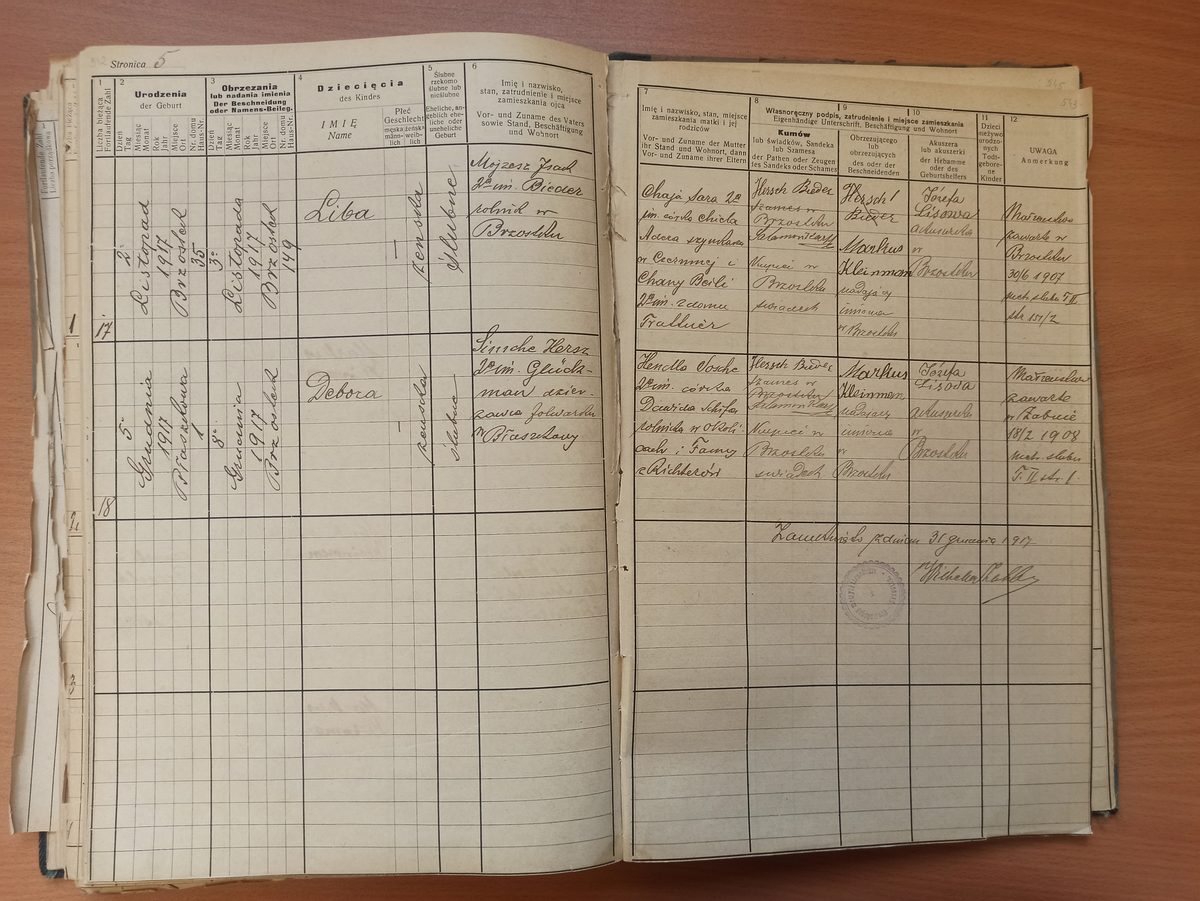 Stronica 5
1
Liczba bieżąca
Fortlaufende Zahl
2
Urodzenia
der Geburt
Dzień
Tag
Miesiąc
Monat
Rok
Jahr
Miejsce
Ort
Nr. domu
Haus-Nr.
3
Obrzezania
lub nadania imienia
Der Beschneidung
oder Namens-Beileg.
Dzień
Tag
Miesiąc
Monat
Rok
Jahr
Miejsce
Ort
Nr. domu
Haus-Nr.
4
Dziecięcia
des Kindes
IMIĘ
Name
Płeć
Geschlecht
męska
männ-
lich
żeńska
weib-
lich
5
Ślubne
rzekomo
ślubne lub
nieślubne
Eheliche, an-
geblich ehe-
liche oder
uneheliche
Geburt
6
Imię i nazwisko,
stan, zatrudnienie i miejsce
zamieszkania ojca
Vor- und Zuname des Vaters
sowie Stand, Beschäftigung
und Wohnort
17
2
Listopad
1917
Brzostek
35
3
Listopada
1917
Brzostek
149
Liba
—
żenska
ślubne
Mojżesz Isak
2ga im. Bieder
rolnik w
Brzostku
18
5
Grudnia
1917
Błaszkowa
1
8
Grudnia
1917
Brzostek
Debora
—
żenska
ślubne
Simche Hersz
2ga im. Glück-
man dzier-
żawca folwarku
w Błaszkowy
7
Imię i nazwisko, stan, miejsce
zamieszkania matki i jej
rodziców
Vor- und Zuname der Mutter
ihr Stand und Wohnort, dann
Vor- und Zuname ihrer Eltern
8
9
10
Własnoręczny podpis, zatrudnienie i miejsce zamieszkania
Eigenhändige Unterschrift, Beschäftigung und Wohnort
Kumów
lub świadków, Sandeka
lub Szamesa
der Pathen oder Zeugen
des Sandeks oder Schames
Obrzezującego
lub
obrzezujących
des oder der
Beschneidenden
Akuszera
lub akuszerki
der Hebamme
oder des
Geburtshelfers
11
Dzieci
nieżywo
urodzone
Todt-
geborene
Kinder
12
UWAGA
Anmerkung
Chaja Sara 2ga
im. córka
w Czermnej i
Chany Beili
2ga im. z domu
Trattner
Hersch Bieder
Szames w
Brzostku
Kupiec w
Brzostku
świadek
Hersch
Bieder
Markus
Kleinman
nadający
imiona
w Brzostku
Józefa
Lisowa
akuszerka
w
Brzostku
Małżeństwo
zawarte w
Brzostku
30/6 1907
metr. ślubu T II
str 151/2
2ga im. córka
Dawida Schifa
rolnika w Okoli-
cach i Fanny
z Richterów
Hersch Bieder
Szames w
Brzostku
Kupiec w
Brzostku
świadek
Markus
Kleinman
nadający
imiona
w
Brzostku
Józefa
Lisowa
akuszerka
w
Brzostku
Małżeństwo
zawarte
w Żabnie
18/2 1908
metr. ślubu
T. II str. 1.
Zamknięto z dniem 31 grudnia 1917